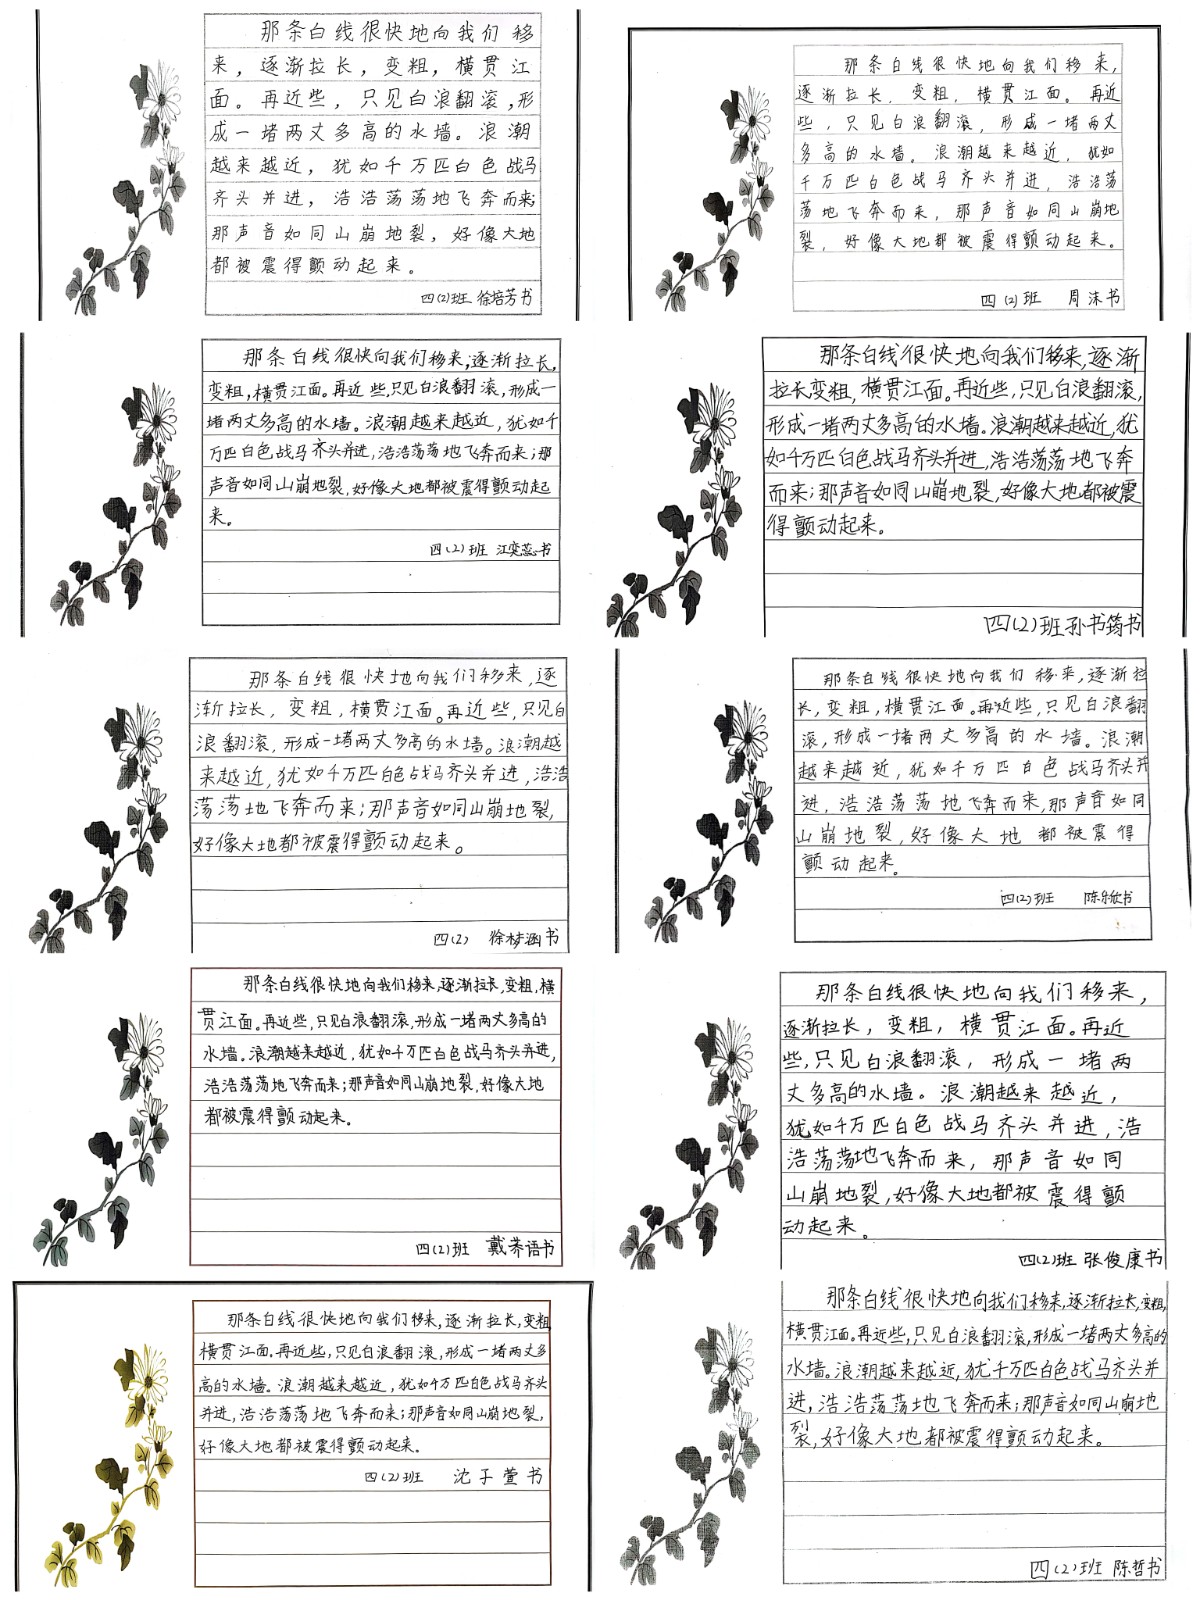 那条白线很快地向我们移
来，逐渐拉长，变粗，横贯江
面。再近些，只见白浪翻滚，形
成一堵两丈多高的水墙。浪潮
越来越近，犹如千万匹白色战马
齐头并进，浩浩荡荡地飞奔而来;
那声音如同山崩地裂，好像大地
都被震得颤动起来。
四(2)班 徐培芳书
那条白线很快地向我们移来，
逐渐拉长，变粗，横贯江面。再近
些，只见白浪翻滚，形成一堵两丈
多高的水墙。浪潮越来越近，犹如
千万匹白色战马齐头并进，浩浩荡
荡地飞奔而来，那声音如同山崩地
裂，好像大地都被震得颤动起来。
四(2)班 周沫书
那条白线很快向我们移来,逐渐拉长,
变粗,横贯江面。再近些,只见白浪翻滚,形成一
堵两丈多高的水墙。浪潮越来越近,犹如千
万匹白色战马齐头并进,浩浩荡荡地飞奔而来;那
声音如同山崩地裂,好像大地都被震得颤动起
来。
四(2)班 江奕蕊书
那条白线很快地向我们移来,逐渐
拉长变粗,横贯江面。再近些,只见白浪翻滚,
形成一堵两丈多高的水墙。浪潮越来越近,犹
如千万匹白色战马齐头并进,浩浩荡荡地飞奔
而来;那声音如同山崩地裂,好像大地都被震
得颤动起来。
四(2)班孙书筠书
那条白线很快地向我们移来,逐
渐拉长,变粗,横贯江面。再近些,只见白
浪翻滚,形成一堵两丈多高的水墙。浪潮越
来越近,犹如千万匹白色战马齐头并进,浩浩
荡荡地飞奔而来;那声音如同山崩地裂,
好像大地都被震得颤动起来。
四(2) 徐梦涵书
那条白线很快地向我们移来,逐渐拉
长,变粗,横贯江面。再近些,只见白浪翻
滚,形成一堵两丈多高的水墙。浪潮
越来越近,犹如千万匹白色战马齐头并
进,浩浩荡荡地飞奔而来,那声音如同
山崩地裂,好像大地都被震得
颤动起来。
四(2)班 陈乐欣书
那条白线很快地向我们移来,逐渐拉长,变粗,横
贯江面。再近些,只见白浪翻滚,形成一堵两丈多高的
水墙。浪潮越来越近,犹如千万匹白色战马齐头并进,
浩浩荡荡地飞奔而来;那声音如同山崩地裂,好像大地
都被震得颤动起来。
四(2)班 戴荞语书
那条白线很快地向我们移来,
逐渐拉长,变粗,横贯江面。再近
些,只见白浪翻滚,形成一堵两
丈多高的水墙。浪潮越来越近,
犹如千万匹白色战马齐头并进,浩
浩荡荡地飞奔而来,那声音如同
山崩地裂,好像大地都被震得颤
动起来。
四(2)班 张俊康书
那条白线很快地向我们移来,逐渐拉长,变粗
横贯江面。再近些,只见白浪翻滚,形成一堵两丈多
高的水墙。浪潮越来越近,犹如千万匹白色战马齐头
并进,浩浩荡荡地飞奔而来;那声音如同山崩地裂,
好像大地都被震得颤动起来。
四(2)班 沈子萱书
那条白线很快地向我们移来,逐渐拉长,变粗,
横贯江面。再近些,只见白浪翻滚,形成一堵两丈多高的
水墙。浪潮越来越近,犹千万匹白色战马齐头并
进,浩浩荡荡地飞奔而来;那声音如同山崩地
裂,好像大地都被震得颤动起来。
四(2)班 陈哲书